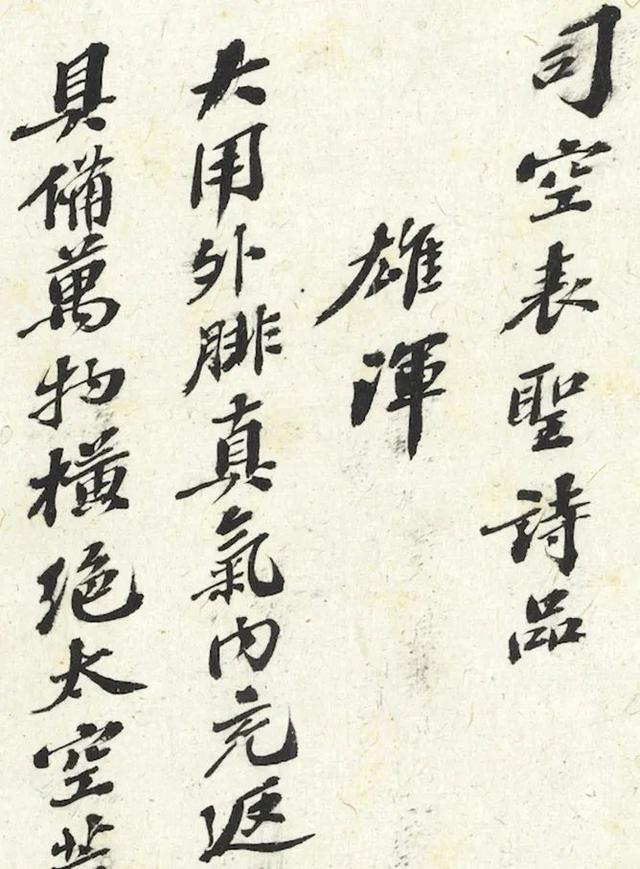 司空表聖詩品
雄渾
大用外腓真氣內充返
具備萬物橫絕太空